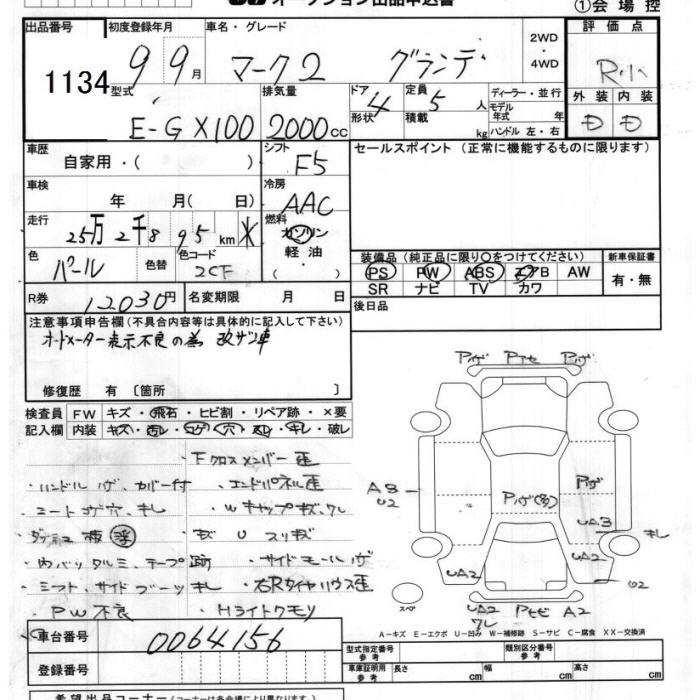 オークション出品申込書
①会場控
出品番号 初度登録年月 車名・グレード 2WD・4WD 評価点
1134 99月 マーク2 グランデ R小
型式 排気量 ドア形状 定員 積載 ディーラー・並行 モデル年式 年 ハンドル 左・右 外装 内装
E-GX100 2000cc 4 5人 kg D D
車歴 シフト セールスポイント（正常に機能するものに限ります）
自家用・( ) F5
車検 冷房
年 月(日) AAC
走行 燃料
25万2千895km ガソリン
軽油
( )
色 色替 色コード
パール 2CF
装備品（純正品に限り○をつけてください） 新車保証書
PS PW ABS エアB AW 有・無
SR ナビ TV カワ
R券 12030円 名変期限 月 日
後日品
注意事項申告欄（不具合内容等は具体的に記入して下さい）
オードメーター表示不良の為 改ザン車
修復歴 有 〔箇所 〕
検査員 FW キズ・飛石・ヒビ割・リペア跡・×要
記入欄 内装 キズ・汚レ・コゲ・穴・スレ・キレ・破レ
Fクロスメンバー歪
ハンドル ハゲ、カバー付 ・エンドパネル歪
・シートコゲ穴、キレ ・Wキャップキズ、ワレ
ダッシュ 浮 キズ U スリキズ
内バリタルミ、テープ跡 ・サイドモールハゲ
・シフト、サイドブーツキレ ・右Rタイヤハウス歪
・PW不良 ・Hライトクモリ
Pハゲ Pハゲ
A8 U2
Pハゲ
UA3 キレ
UA2 UA2 U2
スペア
UA2 ワレ A2
A－キズ E－エクボ U－凹み W－補修跡 S－サビ C－腐食 XX－交換済
車台番号 0064156
型式指定番号 参考 類別区分番号 参考
登録番号
車庫証明用 参考 長さ cm 幅 cm 高さ cm
希望出品コーナー（コーナーは各会場